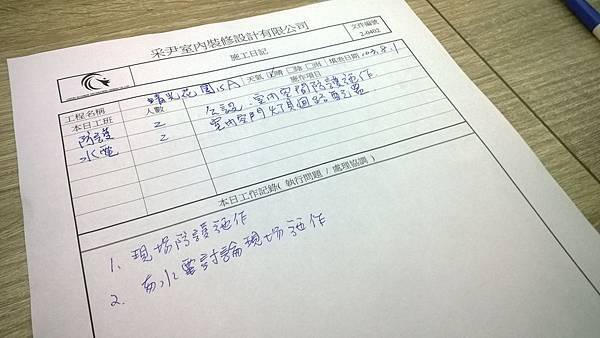 采尹室內裝修設計有限公司
施工日記
文件編號
2-0402
工程名稱 晴光花園15A 天氣 ☑晴 □陰 □雨 填表日期 103.8.1
本日工班 人數 施作項目
防護 2 公設、室內空間防護施作
水電 2 室內空間燈具迴路配置
本日工作記錄( 執行問題 / 處理協調 )
1. 現場防護施作
2. 與水電討論現場施作